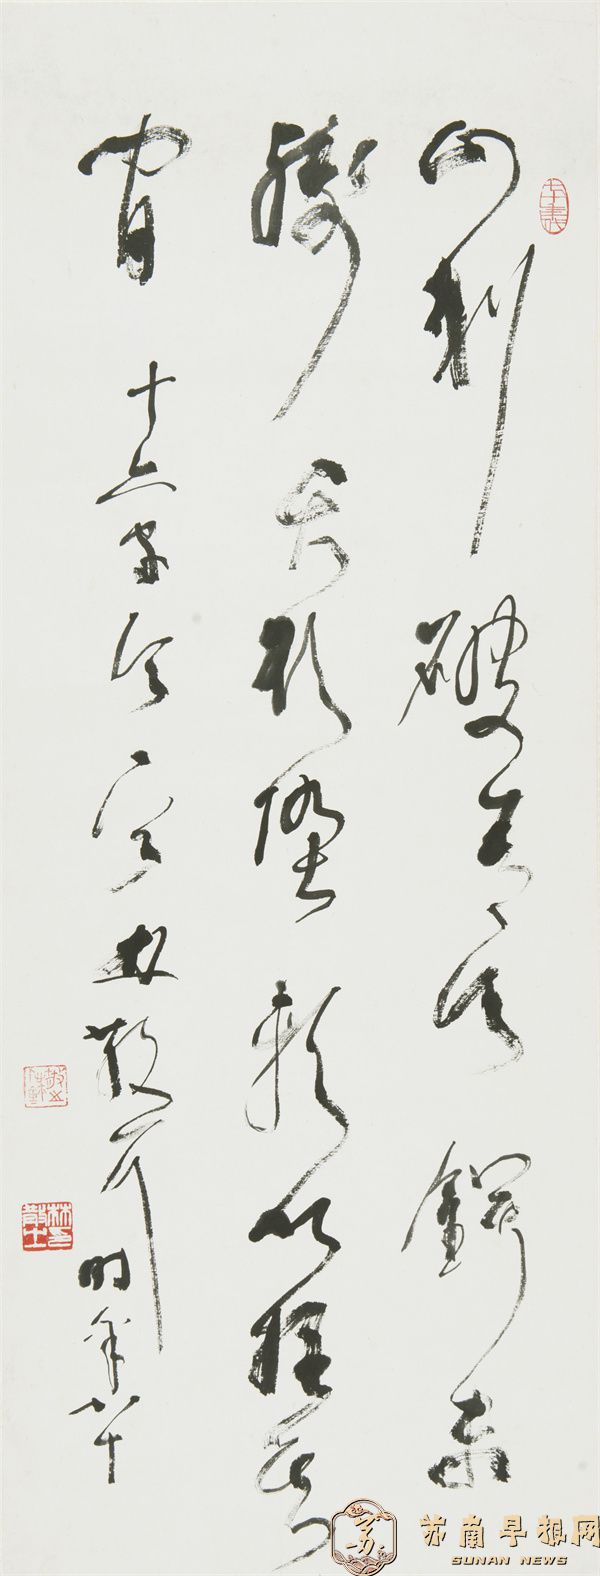 山刺破青天鍔未
殘天欲墮賴以拄其
間 十六字令 林散耳 時年八十
苏南早报网
SUNAN NEWS